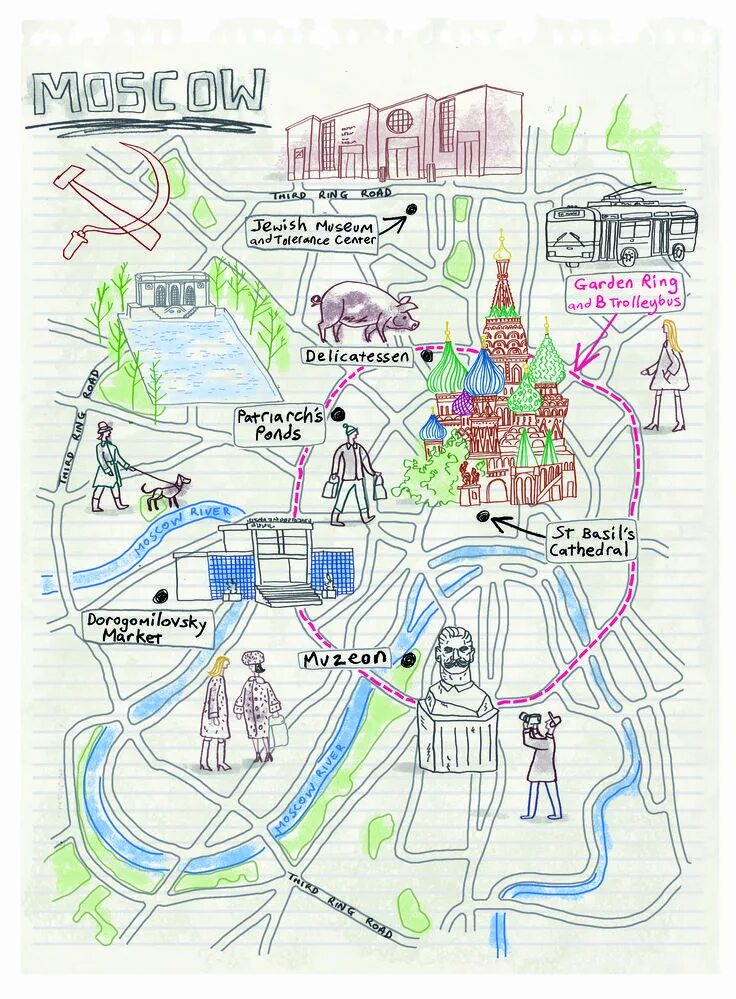 MOSCOW
THIRD RING ROAD
Jewish Museum
and Tolerance Center
Garden Ring
and B Trolleybus
Delicatessen
THIRD RING ROAD
Patriarch's
Ponds
MOSCOW RIVER
St Basil's
Cathedral
Dorogomilovsky
Market
Muzeon
MOSCOW RIVER
THIRD RING ROAD